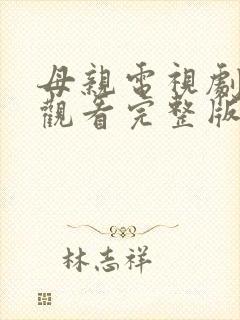 母親電視劇
觀看完整版
林志祥